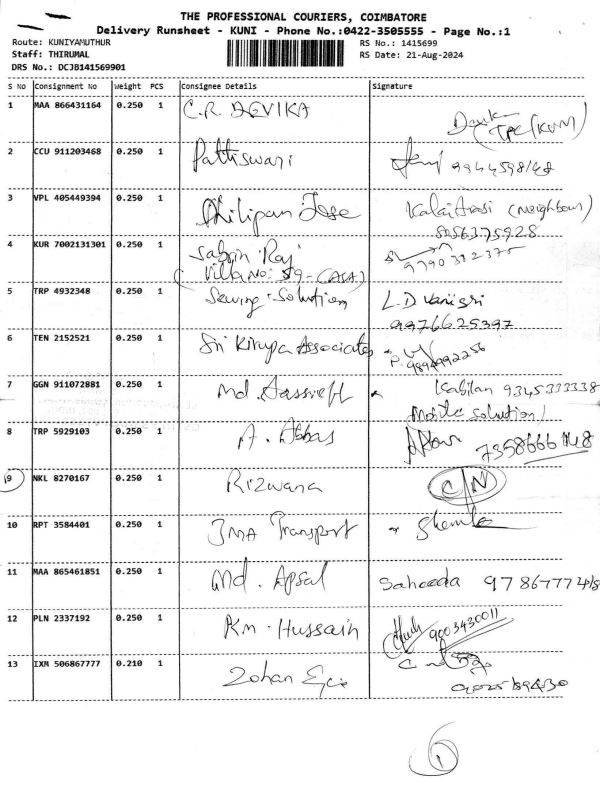 THE PROFESSIONAL COURIERS, COIMBATORE
Delivery Runsheet - KUNI - Phone No.:0422-3505555 - Page No.:1
Route: KUNIYAMUTHUR RS No.: 1415699
Staff: THIRUMAL RS Date: 21-Aug-2024
DRS No.: DCJB141569901
S No Consignment No Weight PCS Consignee Details Signature
1 MAA 866431164 0.250 1 C.R. DEVIKA
2 CCU 911203468 0.250 1 Pattiswari
3 VPL 405449394 0.250 1 Philipan Jose Kalaiarasi (Neighbour)
8056375928
4 KUR 7002131301 0.250 1 Sabrin Raj
(Villa No: 59 - (CASA) 9790312375
5 TRP 4932348 0.250 1 Sewing Solution L.D Vanisri
9976625397
6 TEN 2152521 0.250 1 Sri Kirupa Associates
9894992256
7 GGN 911072881 0.250 1 Md. Kabilan 9345333338
Mobile Solution
8 TRP 5929103 0.250 1 A. Abbas 7358666148
9 NKL 8270167 0.250 1 Rizwana C/N
10 RPT 3584401 0.250 1 JMA Transport
11 MAA 865461851 0.250 1 Md. Apsal Saheeda
12 PLN 2337192 0.250 1 K.M. Hussain 9003430011
13 IXM 506867777 0.210 1 Zohan
6